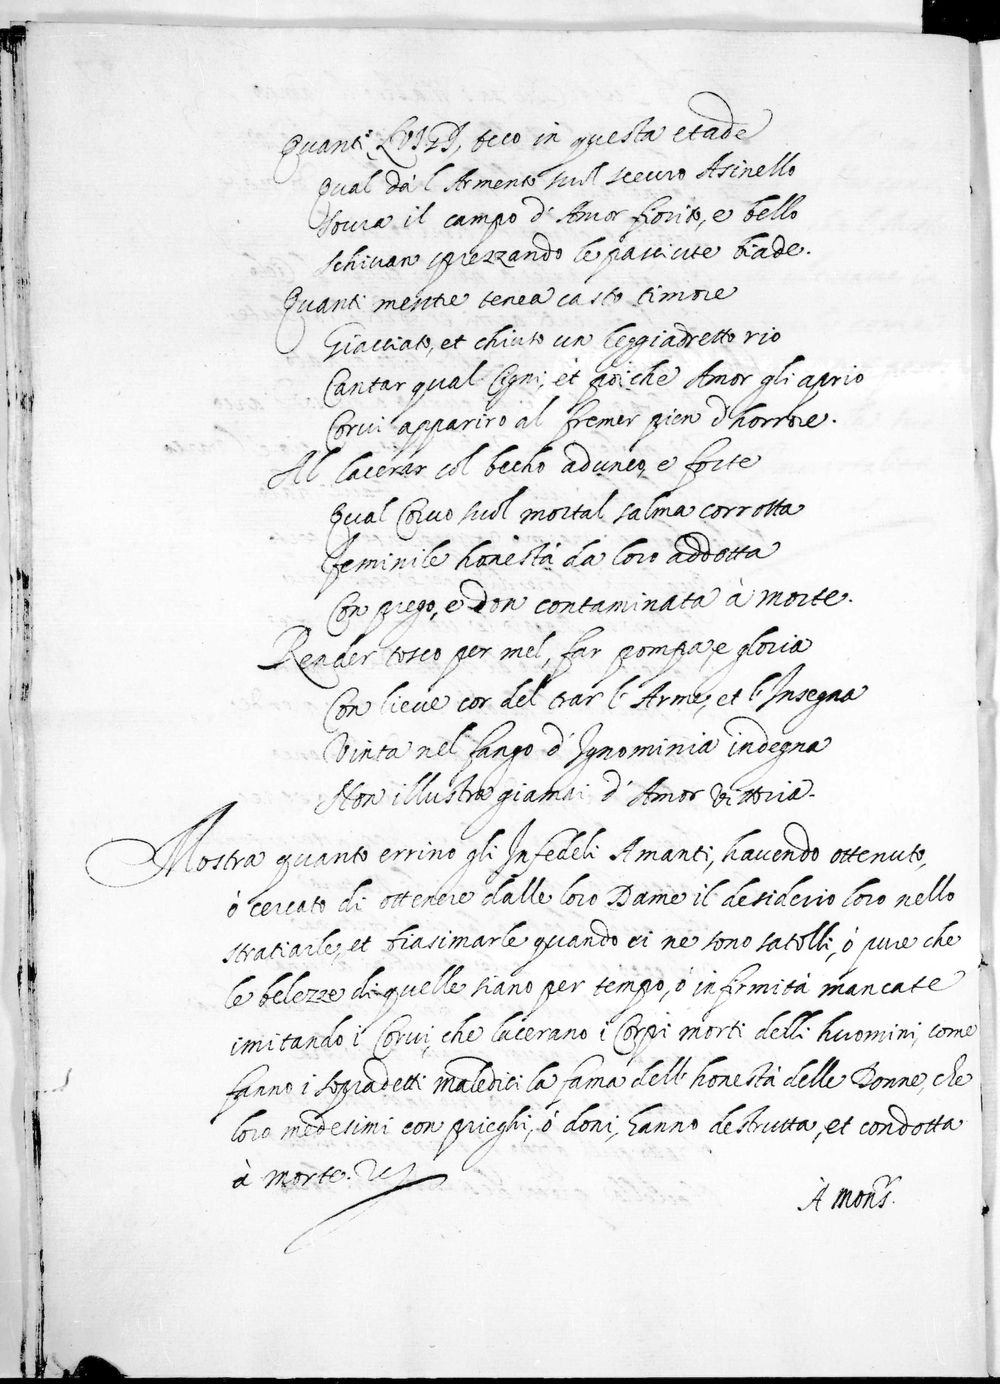 Quanti LVIGI, ecco in questa etade
Qual dà l Armento sul securo Asinello
Soura il campo d'Amor fiorito, e bello
Schiuan sprezzando le pasciute biade.
Quanti mentre tenea casto timore
Giacciato, et chiuso un leggiadretto rio
Cantar qual Cigni, et poi che Amor gli aprio
Corui appariro al fremer pien d'horrore.
Al lacerar col becho adunco, e forte
Qual Coruo sul mortal salma corrotta
Feminile honestà da loro addotta
Con prego, e don contaminata à morte.
Render tosco per mel, far pompa, e gloria
Con lieue cor del trar l'Arme, et l'Insegna
Vinta nel fango d'Ignominia indegna
Non illustra giamai d'Amor vittoria.
Mostra quanto errino gli Infedeli Amanti, hauendo ottenuto,
ò cercato di ottenere dalle loro Dame il desiderio loro nello
stratiarle, et biasimarle quando ei ne sono satolli, ò pure che
le belezze di quelle siano per tempo, ò infirmità mancate
imitando i Corui, che lacerano i Corpi morti delli huomini, come
fanno i sopradetti maledici la fama dell'honestà delle Donne, che
loro medesimi con prieghi, ò doni, hanno destrutta, et condotta
à morte.
A Mons.r